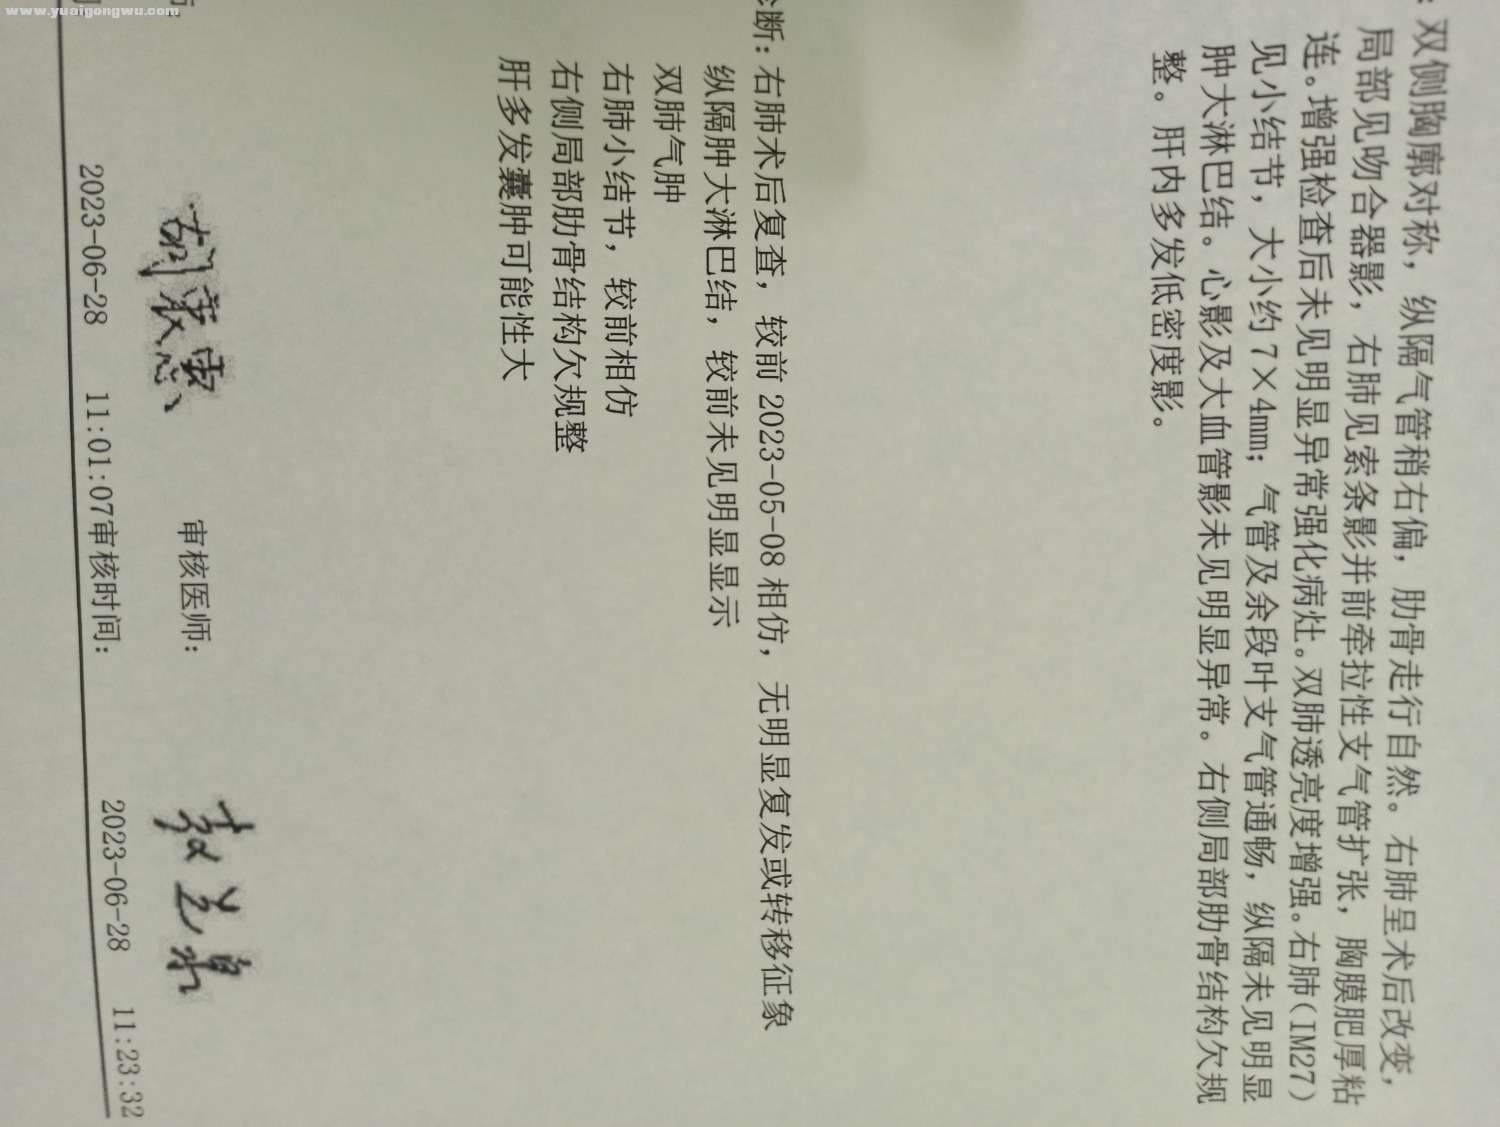 www.yuaigongwu.com
：双侧胸廓对称，纵隔气管稍右偏，肋骨走行自然。右肺呈术后改变，
局部见吻合器影，右肺见索条影并前牵拉性支气管扩张，胸膜肥厚粘
连。增强检查后未见明显异常强化病灶。双肺透亮度增强。右肺(IM27)
见小结节，大小约7×4mm；气管及余段叶支气管通畅，纵隔未见明显
肿大淋巴结。心影及大血管影未见明显异常。右侧局部肋骨结构欠规
整。肝内多发低密度影。
诊断：右肺术后复查，较前2023-05-08相仿，无明显复发或转移征象
纵隔肿大淋巴结，较前未见明显显示
双肺气肿
右肺小结节，较前相仿
右侧局部肋骨结构欠规整
肝多发囊肿可能性大
审核医师：
2023-06-28 11:01:07审核时间： 2023-06-28 11:23:32